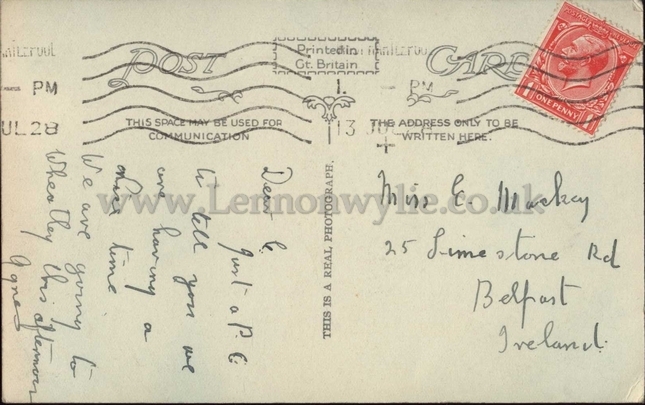 POST CARD
Printed in
Gt. Britain
PM
PM
UL 28
13 JUL
THIS SPACE MAY BE USED FOR
COMMUNICATION
THE ADDRESS ONLY TO BE
WRITTEN HERE.
POSTAGE REVENUE
ONE PENNY
THIS IS A REAL PHOTOGRAPH.
www.Lennonwylie.co.uk
Dear C.
Just a P.C.
to tell you we
are having a
nice time
We are going to
Wheatley this afternoon
Agnes
Miss C. Mackay
25 Limestone Rd
Belfast
Ireland.